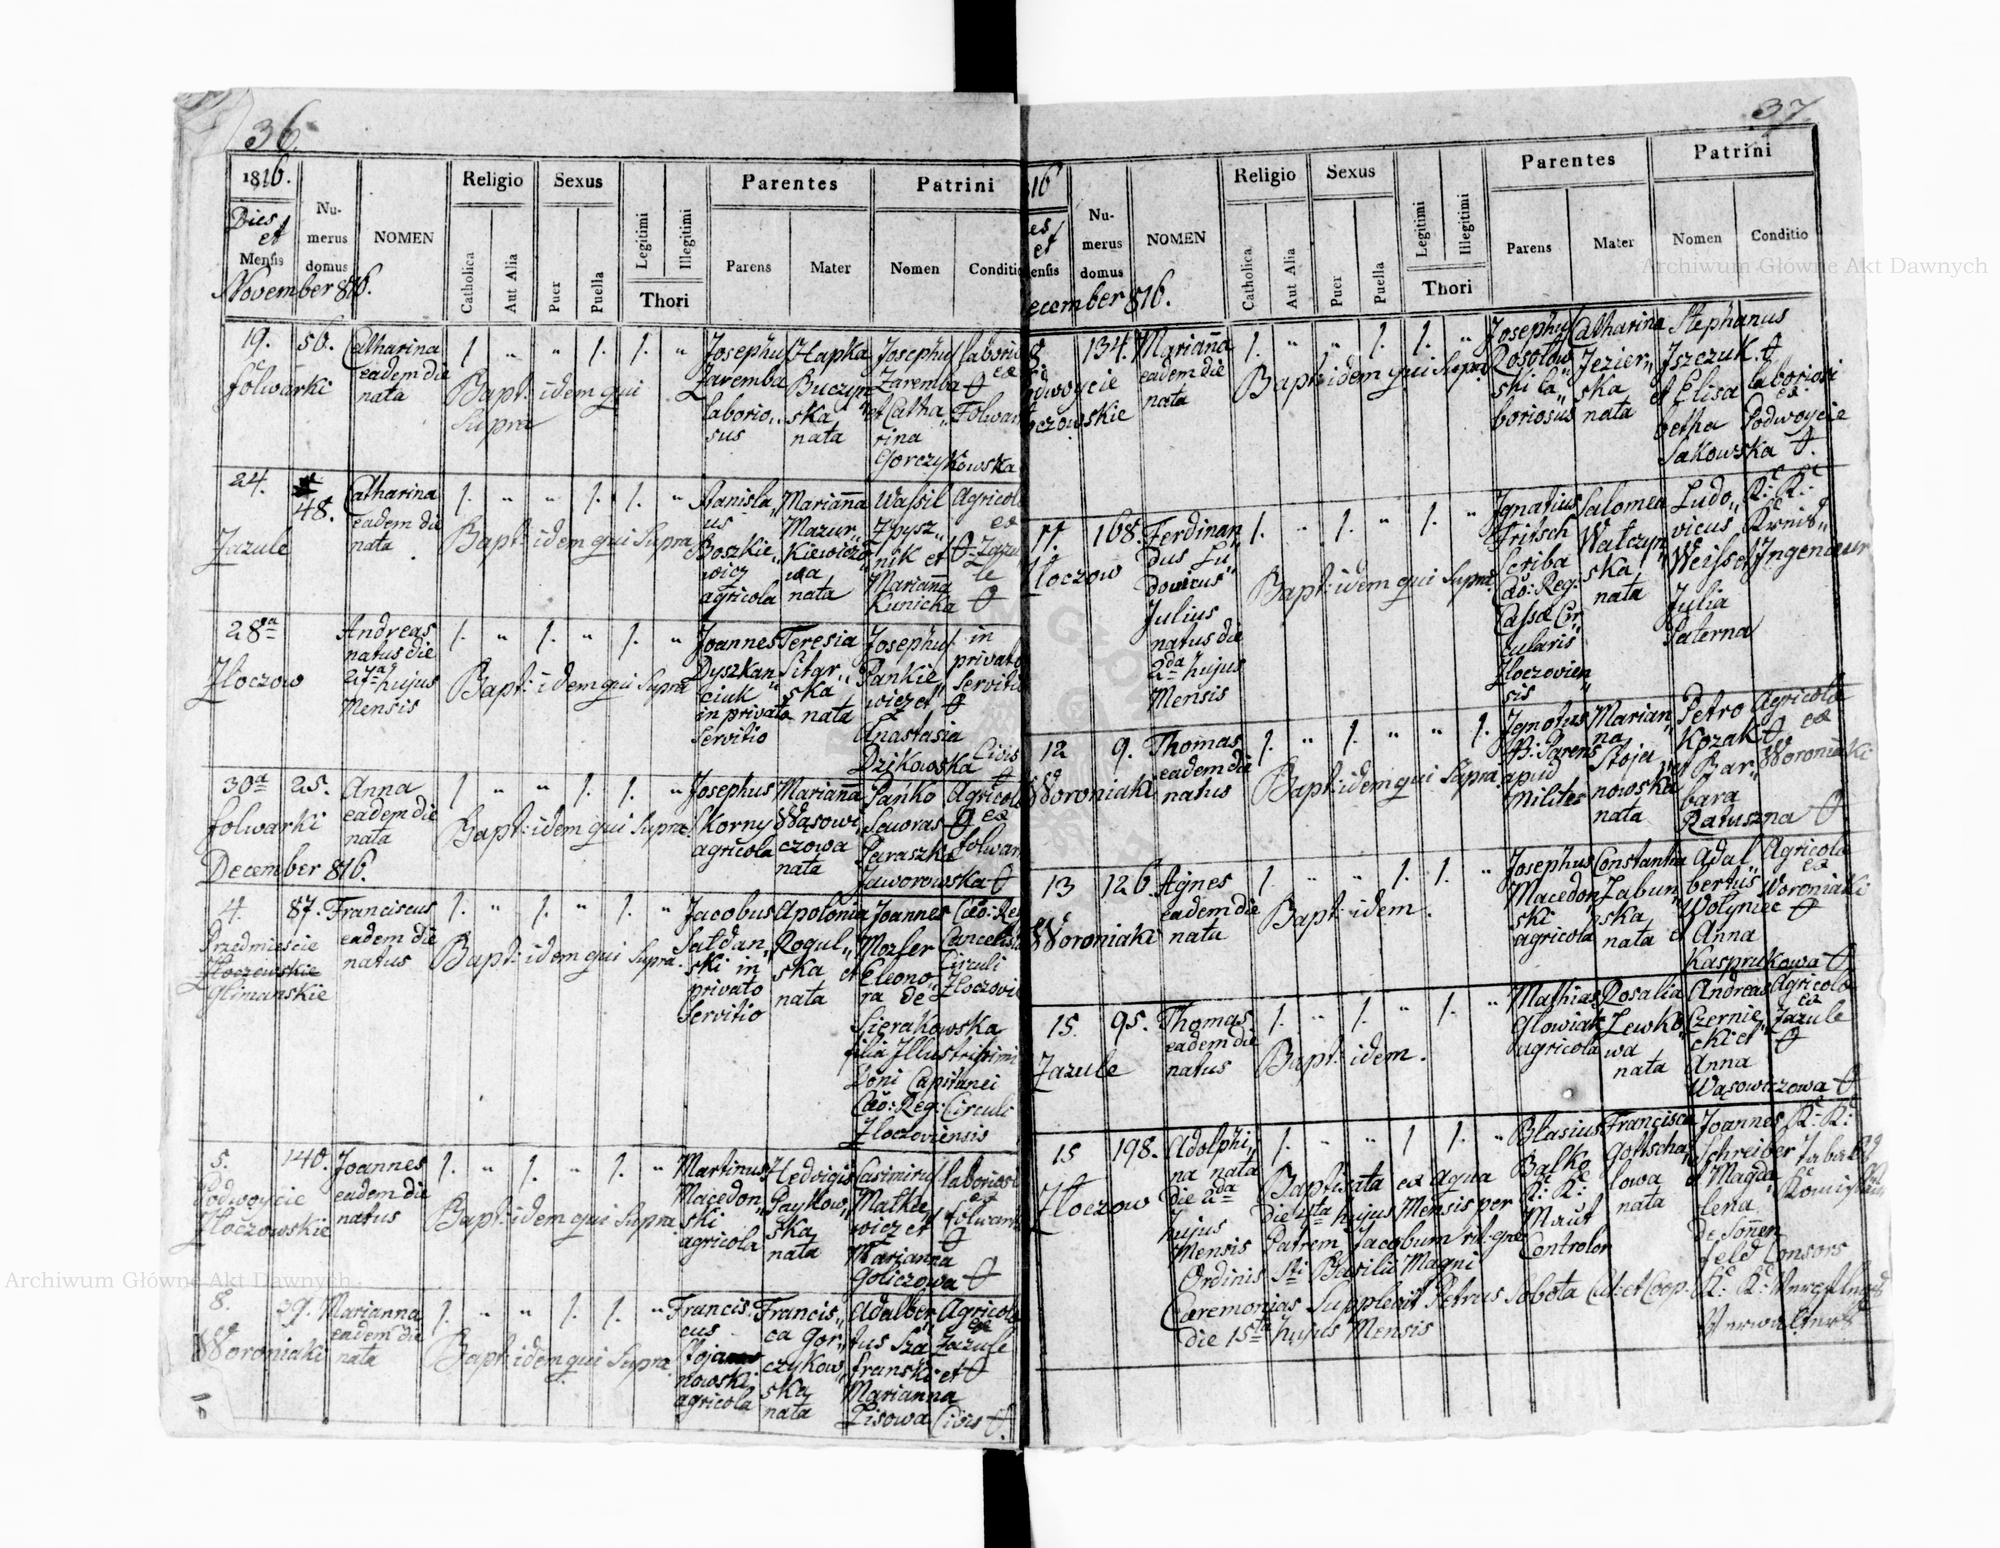 36.
1816.
Dies et Mensis
Numerus domus
NOMEN
Religio
Catholica
Aut Alia
Sexus
Puer
Puella
Legitimi
Illegitimi
Thori
Parentes
Parens
Mater
Patrini
Nomen
Conditio
November 816.
19.
Folwarki
50.
Catharina
eadem die
nata
1. " " 1. 1. "
Bapt: idem qui
Supra
Josephus
Zaremba
laborio„
sus
Hapka
Buczyn„
ska
nata
Josephus
Zaremba
et Catha„
rina
Gorczykowska
laborio
ex
Folwar
24.
Zazule
48.
Catharina
eadem die
nata
1. " " 1. 1. "
Bapt: idem qui Supra
Stanisla„
us
Boszkie„
wicz
agricola
Marianna
Mazur„
kiewiczo„
wa
nata
Wasil
Zbysz„
nik et
Marianna
Kunicka
Agricol
ex
Zazu
le
28va
Zloczow
Andreas
natus die
27a hujus
Mensis
1. " 1. " 1. "
Bapt: idem qui Supra
Joannes
Dyszkan„
ciuk
in privato
Servitio
Teresia
Sitgr„
ska
nata
Josephus
Pankie„
wicz et
Anastasia
Dzikowska
in
privato
Servitio
Civis
30a
Folwarki
25.
Anna
eadem die
nata
1. " " 1. 1. "
Bapt: idem qui Supra.
Josephus
Skorny
agricola
Marianna
Wąsowi„
czowa
nata
Pańko
Seworas
Paraszka
Jaworowska
Agricol
ex
Folwar
December 816.
4.
Przedmieście
Złoczowskie
Glimanskie
87.
Franciscus
eadem die
natus
1. " 1. " 1. "
Bapt: idem qui Supra.
Jacobus
Sałdan„
ski in
privato
Servitio
Apolonia
Rogul„
ska
nata
Joannes
Mozler
et Eleono„
ra de
Sierakowska
filia Illustrissimi
Dōni Capitanei
Cæo: Reg: Circuli
Zloczoviensis
Cæo: Re
Cancelist
Circuli
Zloczovi
5.
Podwoycie
Zloczowskie
140.
Joannes
eadem die
natus
1. " 1. " 1. "
Bapt: idem qui Supra
Martinus
Macedon„
ski
agricola
Hedvigis
Paykow„
ska
nata
Casimirus
Matke„
wicz et
Marianna
Goliczowa
laboriosi
ex
Folwark
8.
Woroniaki
39.
Marianna
eadem die
nata
1. " " 1. 1. "
Bapt: idem qui Supra.
Francis„
cus
Stoja
nowski
agricola
Francis„
ca Gor„
czykow„
ska
nata
Adalber„
tus Sza„
franski et
Marianna
Lisowa
Agricola
ex
Zazule
Civis
37.
16
es
et
ensis
Numerus domus
NOMEN
Religio
Catholica
Aut Alia
Sexus
Puer
Puella
Legitimi
Illegitimi
Thori
Parentes
Parens
Mater
Patrini
Nomen
Conditio
ecember 816.
8
odwoycie
oczowskie
134.
Marianna
eadem die
nata
1. " " 1. 1. "
Bapt: idem qui Supra
Josephus
Rosołow„
ski la„
boriosus
Catharina
Jezier„
ska
nata
Stephanus
Iszczuk
et Elisa
betha
Sakowska
laboriosi
ex
Podwoycie
11.
Zloczow
168.
Ferdinan„
dus Lu„
dovicus
Julius
natus die
2da hujus
Mensis
1. " 1. " 1. "
Bapt: idem qui Supra
Ignatius
Fritsch
Scriba
Cæo: Reg:
Cassæ Cir„
cularis
Zloczovien„
sis
Salomea
Wałczyn„
ska
nata
Ludo„
vicus
Weissel
Julia
Paterna
K: K:
Kreis„
Ingenieur
12
Woroniaki
9.
Thomas
eadem die
natus
1. " 1. " " 1.
Bapt: idem qui Supra
Ignotus
B: Parens
apud
Milites
Marian„
na
Stoja„
nowska
nata
Petro
Kozak
et Bar„
bara
Ratuszna
Agricola
ex
Woroniaki
13
Woroniaki
126.
Agnes
eadem die
nata
1. " " 1. 1. "
Bapt: idem.
Josephus
Macedon„
ski
agricola
Constantia
Zabun„
ska
nata
Adal„
bertus
Wołyniec
et Anna
Kasprukowa
Agricola
ex
Woroniaki
15.
Zazule
95.
Thomas
eadem die
natus
1. " 1. " 1. "
Bapt: idem.
Mathias
Glowiak
agricola
Rosalia
Lewko„
wa
nata
Andreas
Czernie„
cki et
Anna
Wąsowiczowa
Agricola
ex
Zazule
15
Zloczow
198.
Adolphi„
na nata
die 2da
hujus
Mensis
1. " " 1 1. "
Baptisata ex Aqua
die 4ta hujus Mensis per
Patrem Jacobum rit: græ
Ordinis Sti Basilii Magni
Ceremonias Supplevit Petrus Sobota Cul: et Coop.
die 15ta hujus Mensis
Blasius
Balko
K: K:
Maut
Controlor
Francisca
Gottscha„
lowa
nata
Joannes
Schreiber
et Magda„
lena
de Sonnen
feld Consors
K: K:
Verwalters
K: K: